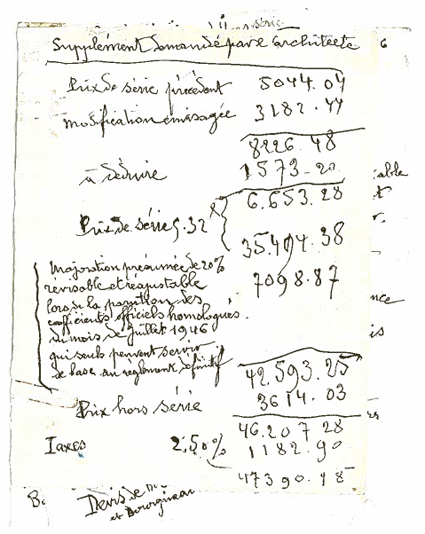 Supplément demandé par l'architecte 6
Prix de série précédent 5044.04
modification envisagée 3182.44
8226.48
à déduire 1573-20
6.653.28
Prix de série 5.32
35494.38
Majoration présumée de 20% 7098.87
révisable et réajustable
lors de la parution des
coefficients officiels homologués
du mois de Juillet 1946
qui seuls peuvent servir
de base au règlement définitif
42.593.25
Prix hors série 3614.03
46.207 28
Taxes 2,50% 1182.90
47390.18
able
nce
is
Devis de